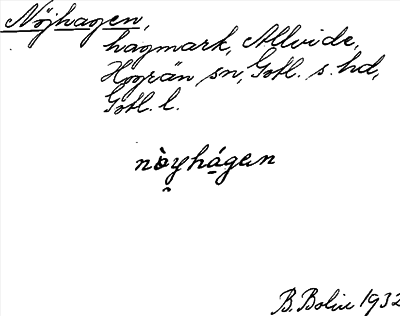 Nöjhagen,
hagmark, Allvide,
Hogrän sn, Gotl. s. hd,
Gotl. l.
nòyhágen
B. Bolin 1932